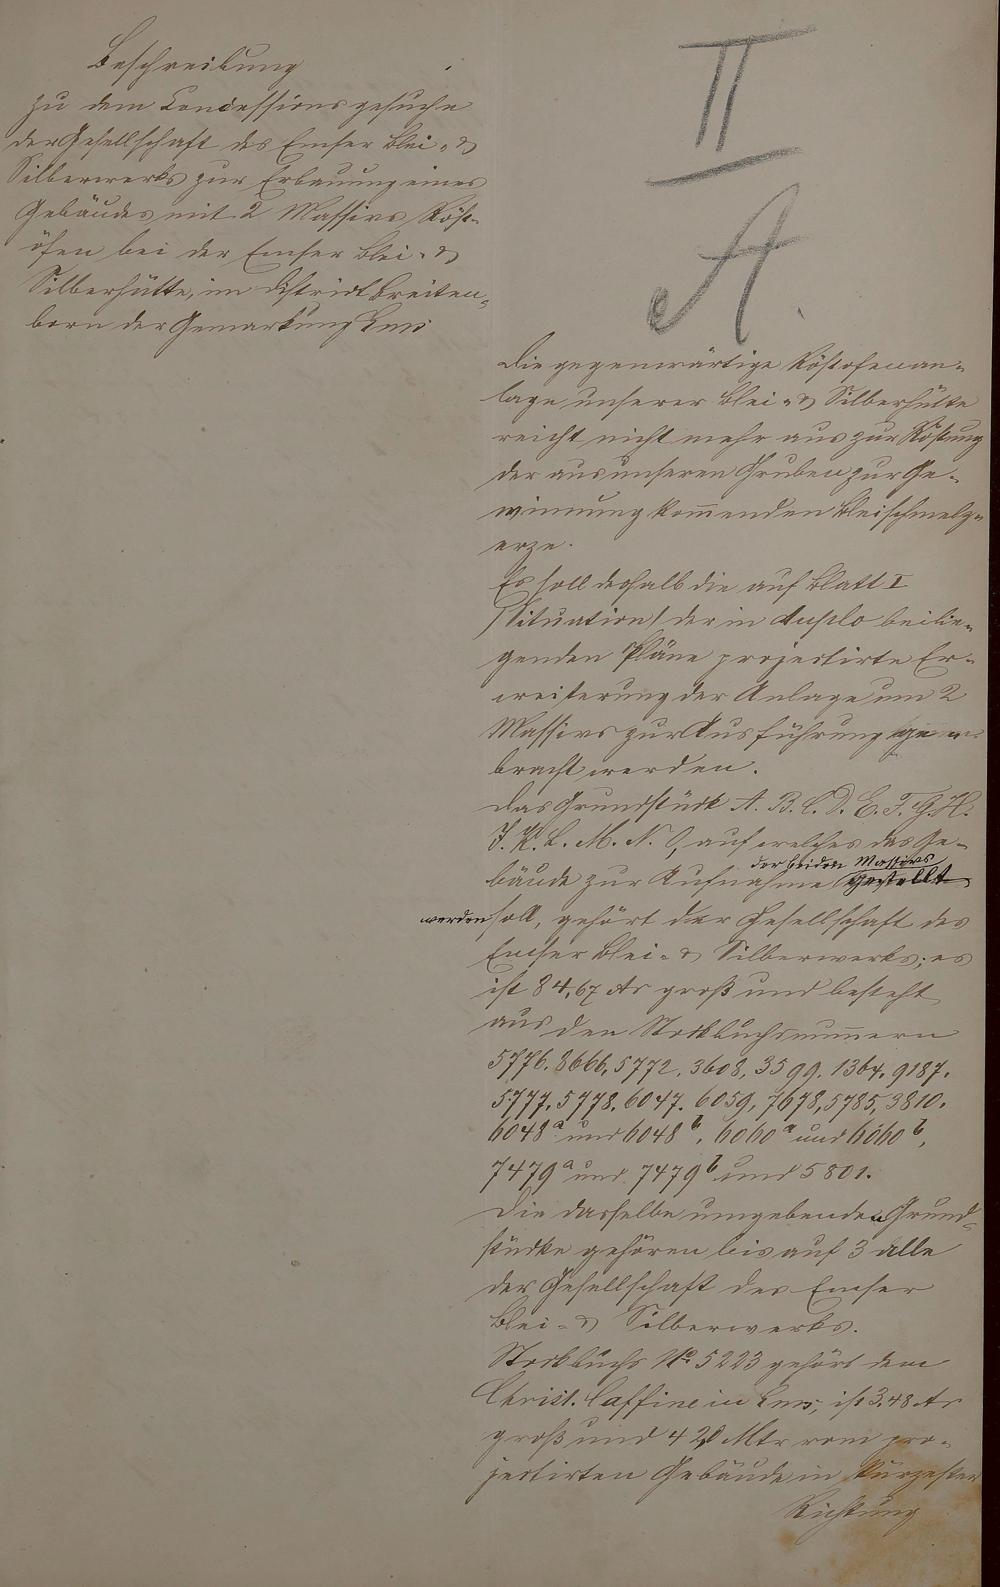 Beschreibung
zu dem Concessionsgesuche
der Gesellschaft des Emser Blei- &
Silberwerks zur Erbauung eines
Gebäudes mit 2 Massivs Röst-
öfen bei der Emser Blei- &
Silberhütte, im Distrikt Breiten-
born der Gemarkung Ems
II
A.
Die gegenwärtige Röstofenan-
lage unserer Blei- & Silberhütte
reicht nicht mehr aus zur Röstung
der aus unseren Gruben zur Ge-
winnung kommenden Bleischmelz-
erze.
Es soll deshalb die auf Blatt I
/Situation/ der in duplo beilie-
genden Pläne projectirte Er-
weiterung der Anlage um 2
Massivs zur Ausführung ge-
bracht werden.
Das Grundstück A. B. C. D. E. F. G. H.
J. K. L. M. N. O, auf welches das Ge-
bäude zur Aufnahme der beiden Massivs gestellt
werden soll, gehört der Gesellschaft des
Emser Blei- & Silberwerks; es
ist 84,67 Ar groß und besteht
aus den Stockbuchsnummern
5776. 8666, 5772, 3608, 3599. 1364. 9187.
5777. 5778. 6047. 6059, 7678, 5785, 3810.
6048 a und 6048 b, 6060 a und 6060 b,
7479 a und 7479 b und 5801.
Die dasselbe umgebenden Grund-
stücke gehören bis auf 3 alle
der Gesellschaft des Emser
Blei- & Silberwerks.
Stockbuchs No 5223 gehört dem
Christ. Caffine in Ems, ist 3,48 Ar
groß und 42 Mtr vom pro-
jectirten Gebäude in kürzester
Richtung